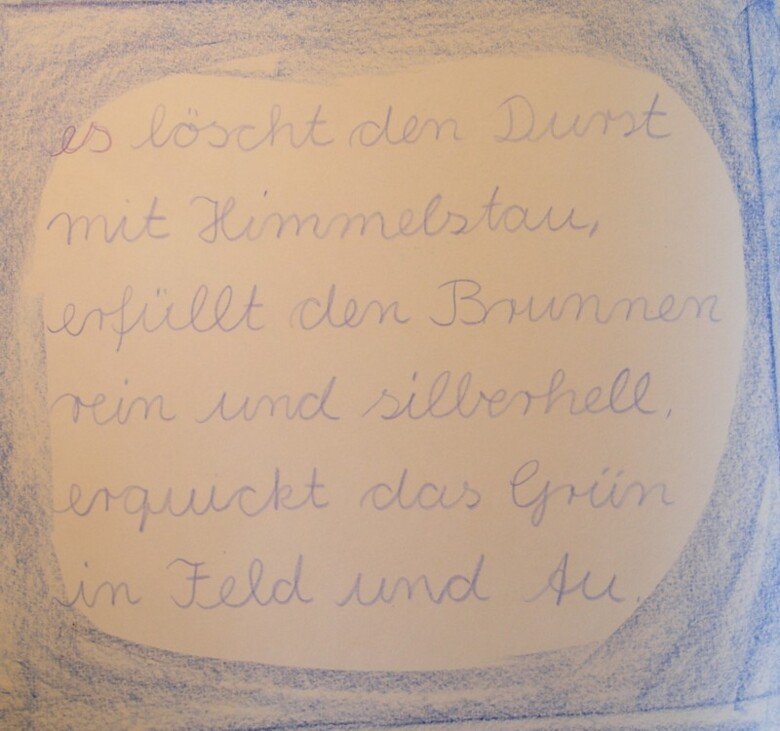 es löscht den Durst
mit Himmelstau,
erfüllt den Brunnen
rein und silberhell,
erquickt das Grün
in Feld und Au.